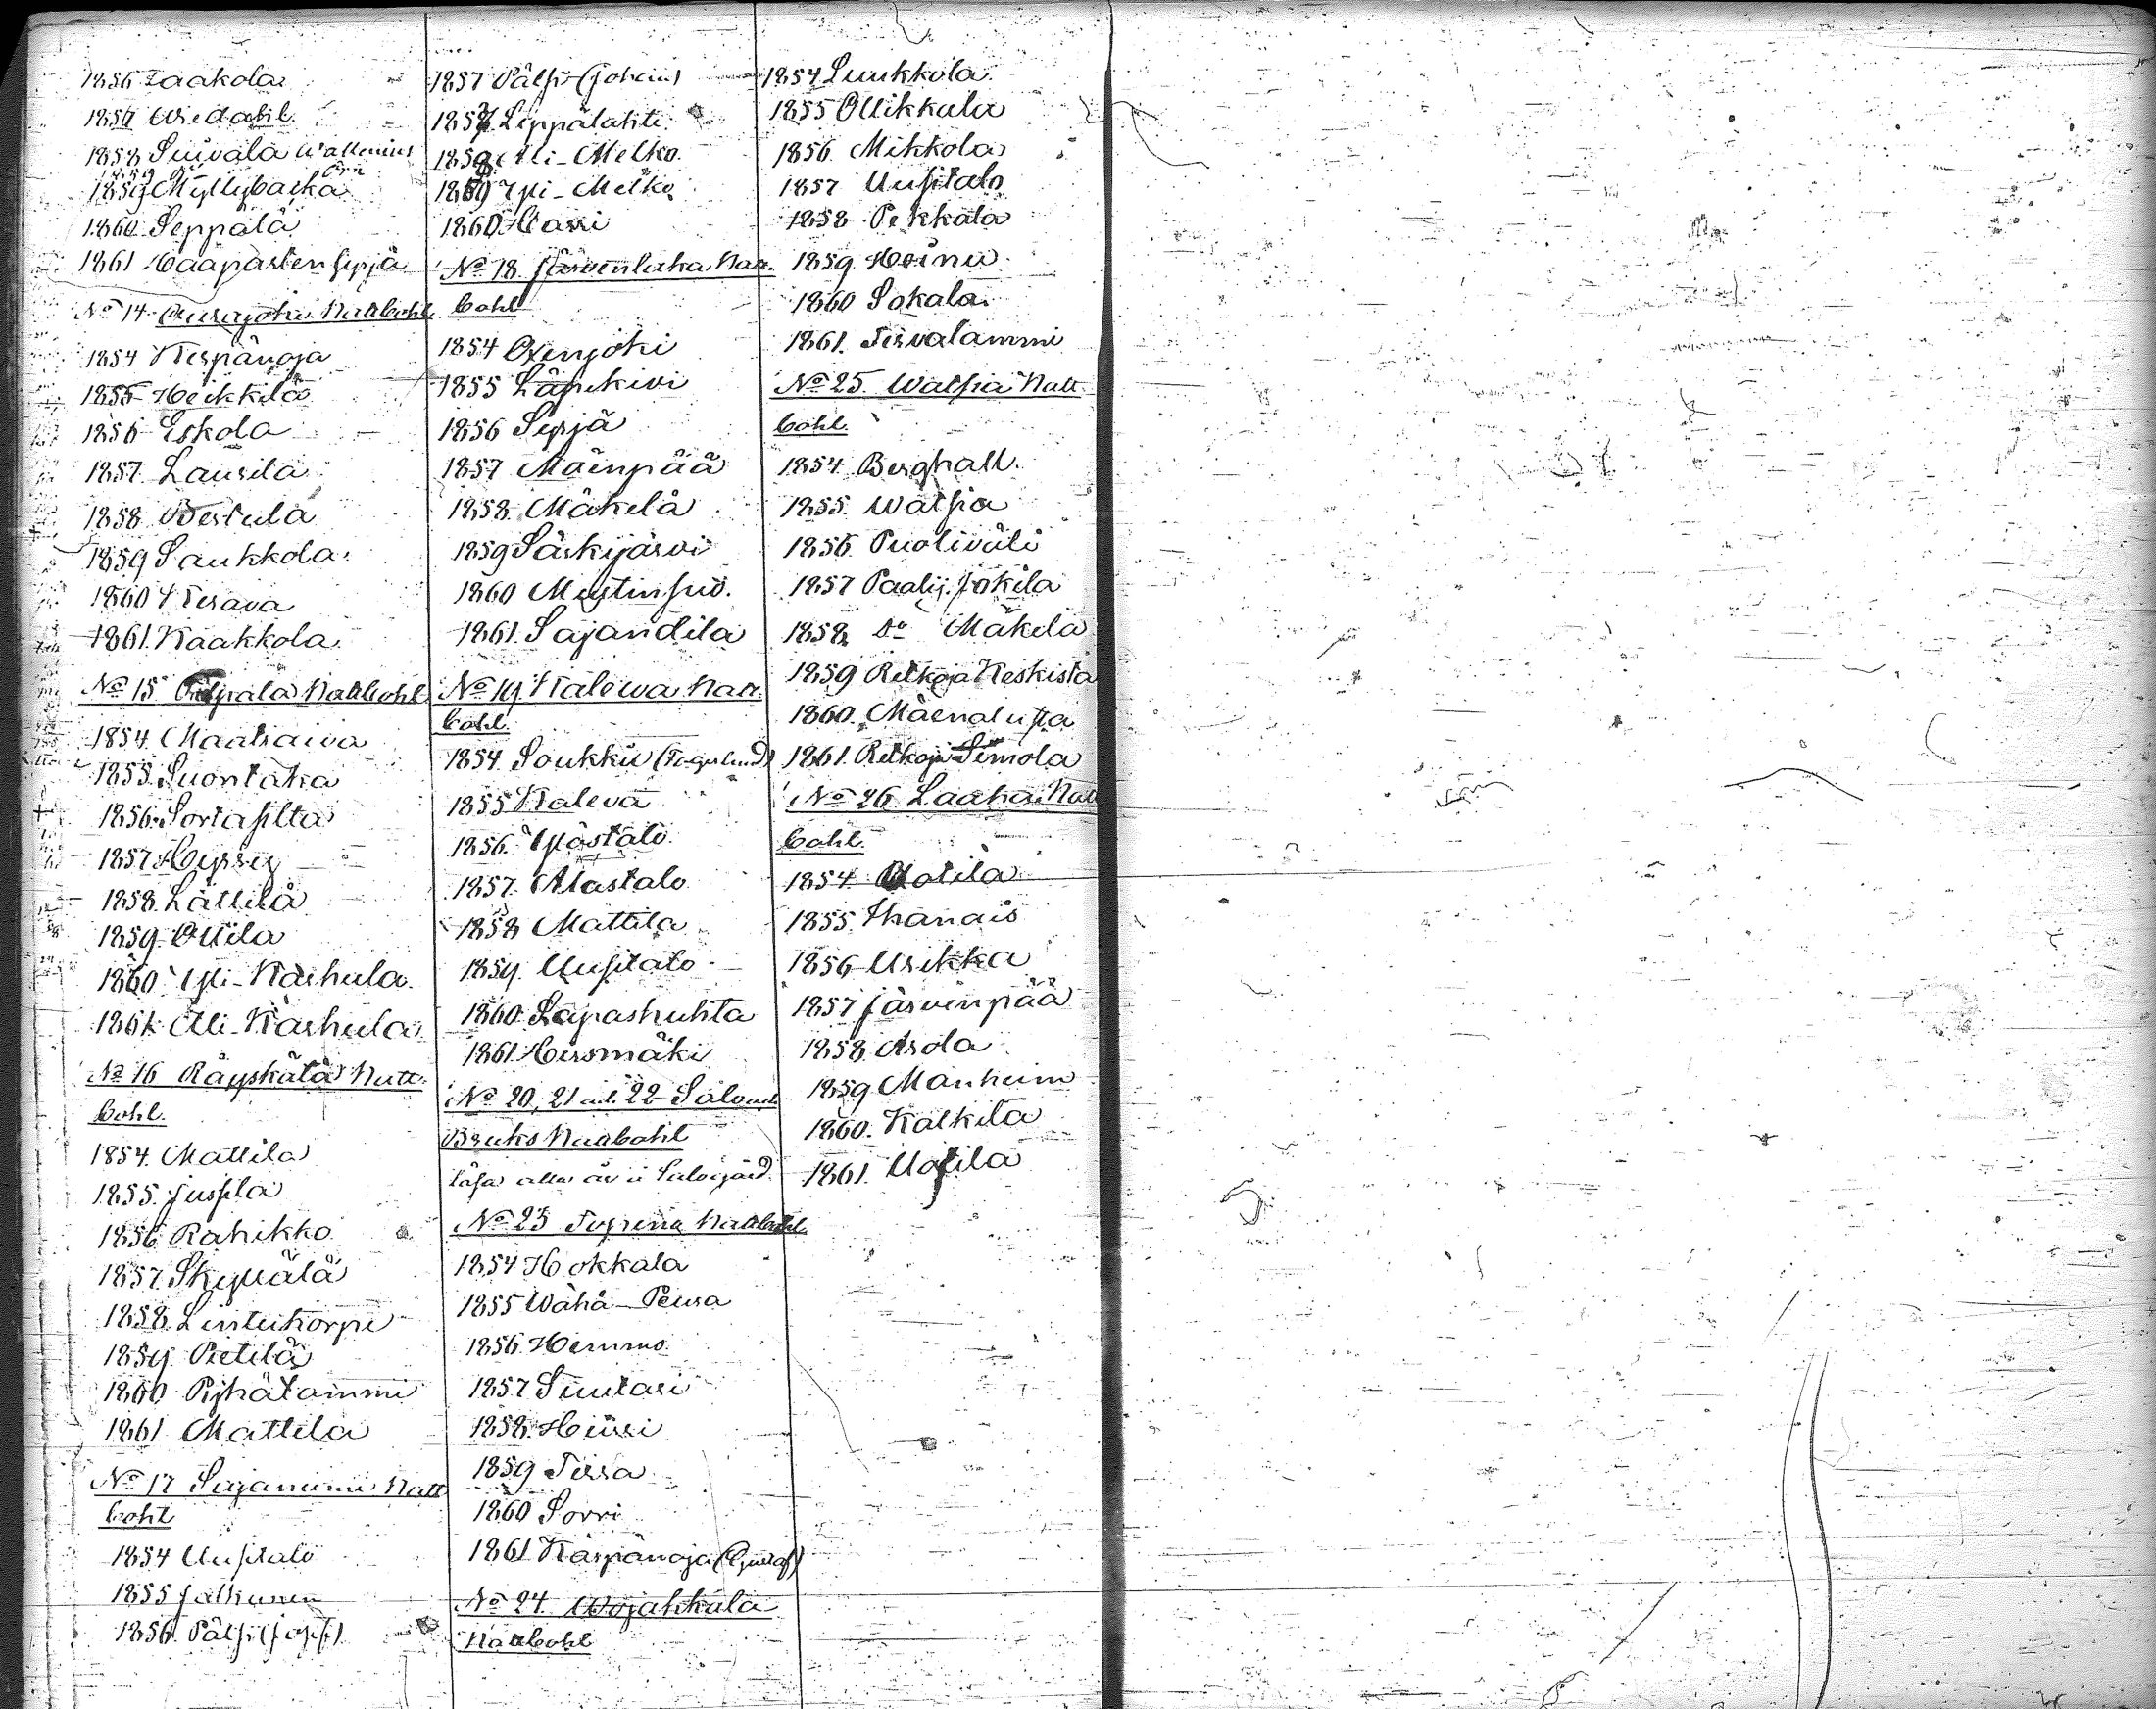 1856 Laakola
1857 Uredahl
1858 Siuvala Wallenius
1859 Myllybacka
1860 Seppälä
1861 Haapastensyrjä
No 14 Nattbohl
1854 Kerpänoja
1855 Heikkilä
1856 Eskola
1857 Laurila
1858 Bertula
1859 Saukkola
1860 Kerava
1861 Kaakkola
No 15 Nattbohl
1854 Maatraiva
1855 Suontaka
1856 Sortasilta
1857 Hyrsy
1858 Lättilä
1859 Ollila
1860 Yli-Karhula
1861 Ali-Karhula
No 16 Räyskälä Natt
bohl.
1854 Mattila
1855 Jussila
1856 Rahikko
1857 Skyttälä
1858 Linteikorpi
1859 Pietilä
1860 Pyhälammi
1861 Mattila
No 17 Sajaniemi Natt
bohl
1854 Uusitalo
1855 Jalkunen
1856 Pälsi
1857 Pälsi (Johan)
1857 Leppälahti
1858 Ali-Melko
1859 Yli-Melko
1860 Harri
No 18 Järventaka Natt
bohl
1854 Oxenjoki
1855 Läpikivi
1856 Syrjä
1857 Mäenpää
1858 Mäkelä
1859 Särkijärvi
1860
1861 Sajandila
No 19 Kalewa Natt
bohl.
1854 Soukku (Fagerlund)
1855 Kaleva
1856 Ylöstalo
1857 Alastalo
1858 Mattila
1859 Uusitalo
1860 Lapashuhta
1861 Hirsmäki
No 20, 21 och 22
Bruks Nattbohl
No 23 Topeno Nattbohl
1854 Hokkala
1855 Wähä-Peura
1856 Hemmo
1857 Suutari
1858 Hiisi
1859 Tirra
1860 Sorri
1861 Kärpänoja (Gustaf)
No 24 Wojakkala
Nattbohl
1854 Luukkola
1855 Ollikkala
1856 Mikkola
1857 Uusitalo
1858 Pekkala
1859 Heinu
1860 Sokala
1861 Tervalammi
No 25 Watsia Natt
bohl.
1854 Berghäll
1855 Watsia
1856 Puoliväli
1857 Paalij. Jokila
1858 Do Mäkelä
1859 Retkoja Keskista
1860 Mäenalusta
1861 Retkoja Simola
No 26 Laaka Natt
bohl.
1854 Uotila
1855 Ihanais
1856 Urikka
1857 Järvenpää
1858 Arola
1859 Manheim
1860 Kalkila
1861 Uotila